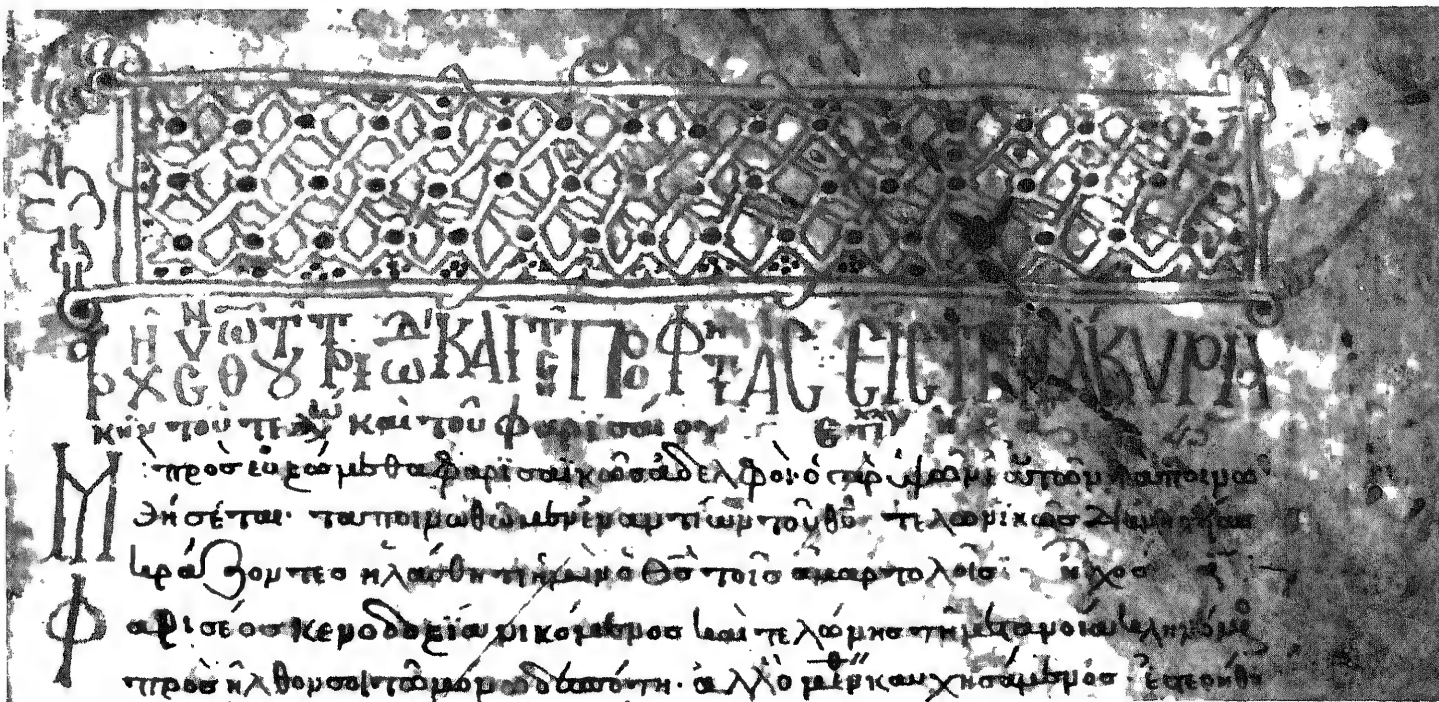 ρχὴ σὺν θῶ τοῦ τριωδ καὶ τς προφητας εἰς τ κυρια
κὴν τοῦ τελω καὶ τοῦ φαρισαίου
Μ προσευξώμεθα φαρϊσαϊκῶς ἀδελφοὶ· ὁ γὰρ ὑψῶν ταπεινω
θήσέται· ταπεινωθῶμεν ἐναντίων τοῦ θῦ τελωνϊκῶς
κράζοντες ἡλάσθητι ἡμῖν ὁ θς τοῖς ἁμαρτολοῖς· ἦχος
Φαρισέος κενοδοξΐα νικόμενος καὶ τελώνης τῆ μετανοία κληνόμε
προσῆλθον σοι τῶ μόνω δεσπότη· ἀλλ ὁ μὲν καυχησάμενος ἐστερήθη